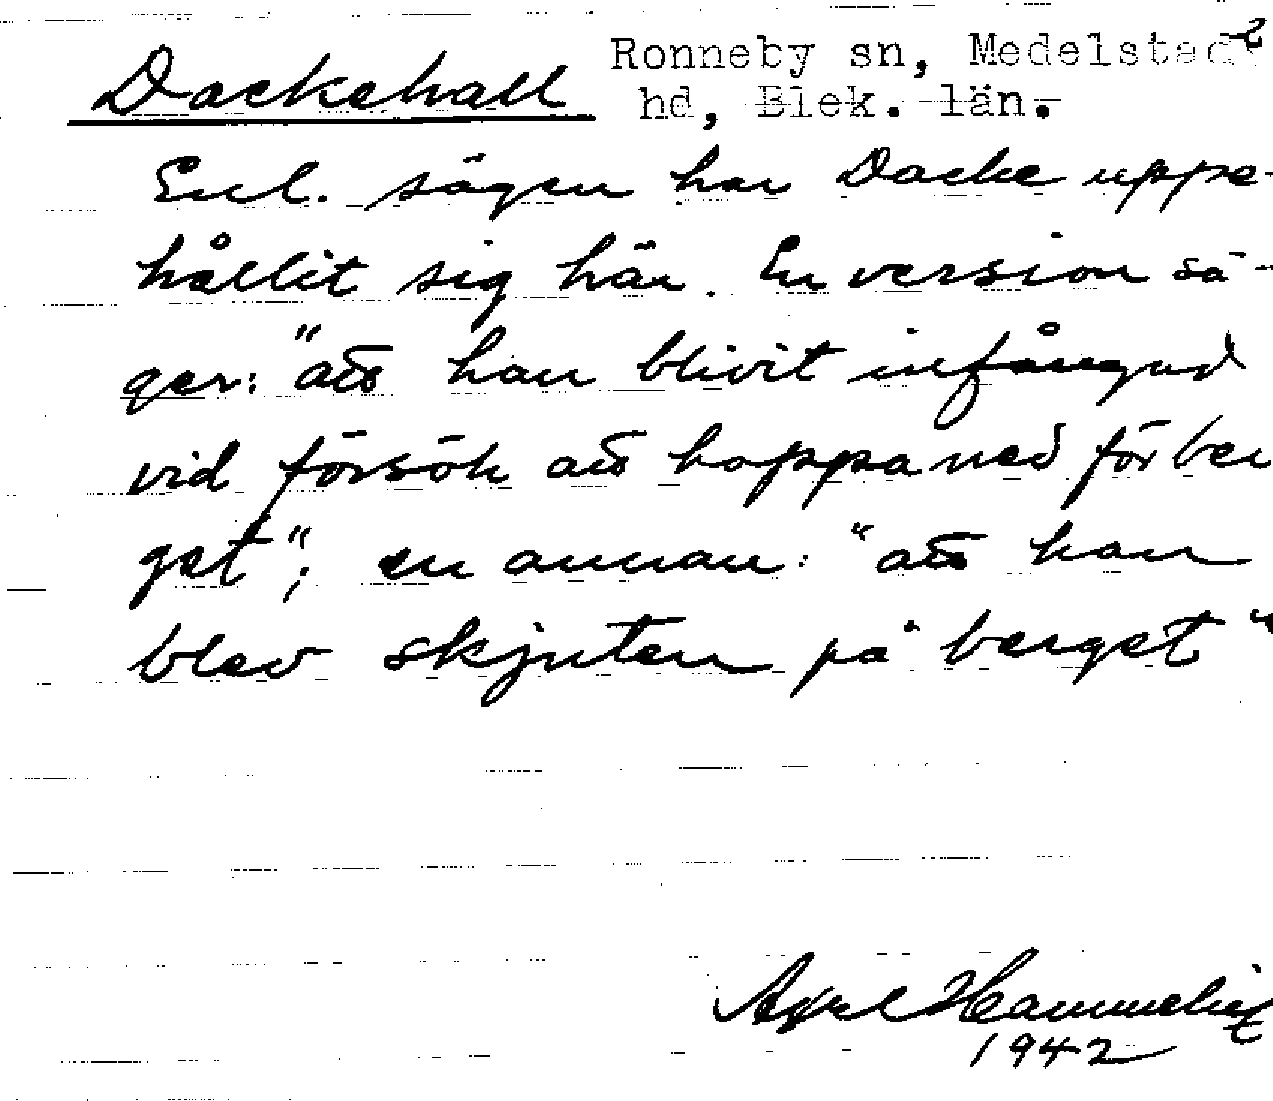 Dackehall Ronneby sn, Medelstad
hd, Blek. län.
Enl. sägen har Dacke uppe-
hållit sig här. En version sä-
ger: "att han blivit infångad
vid försök att hoppa ned för ber
get"; en annan: "att han
blev skjuten på berget"
Axel
1942